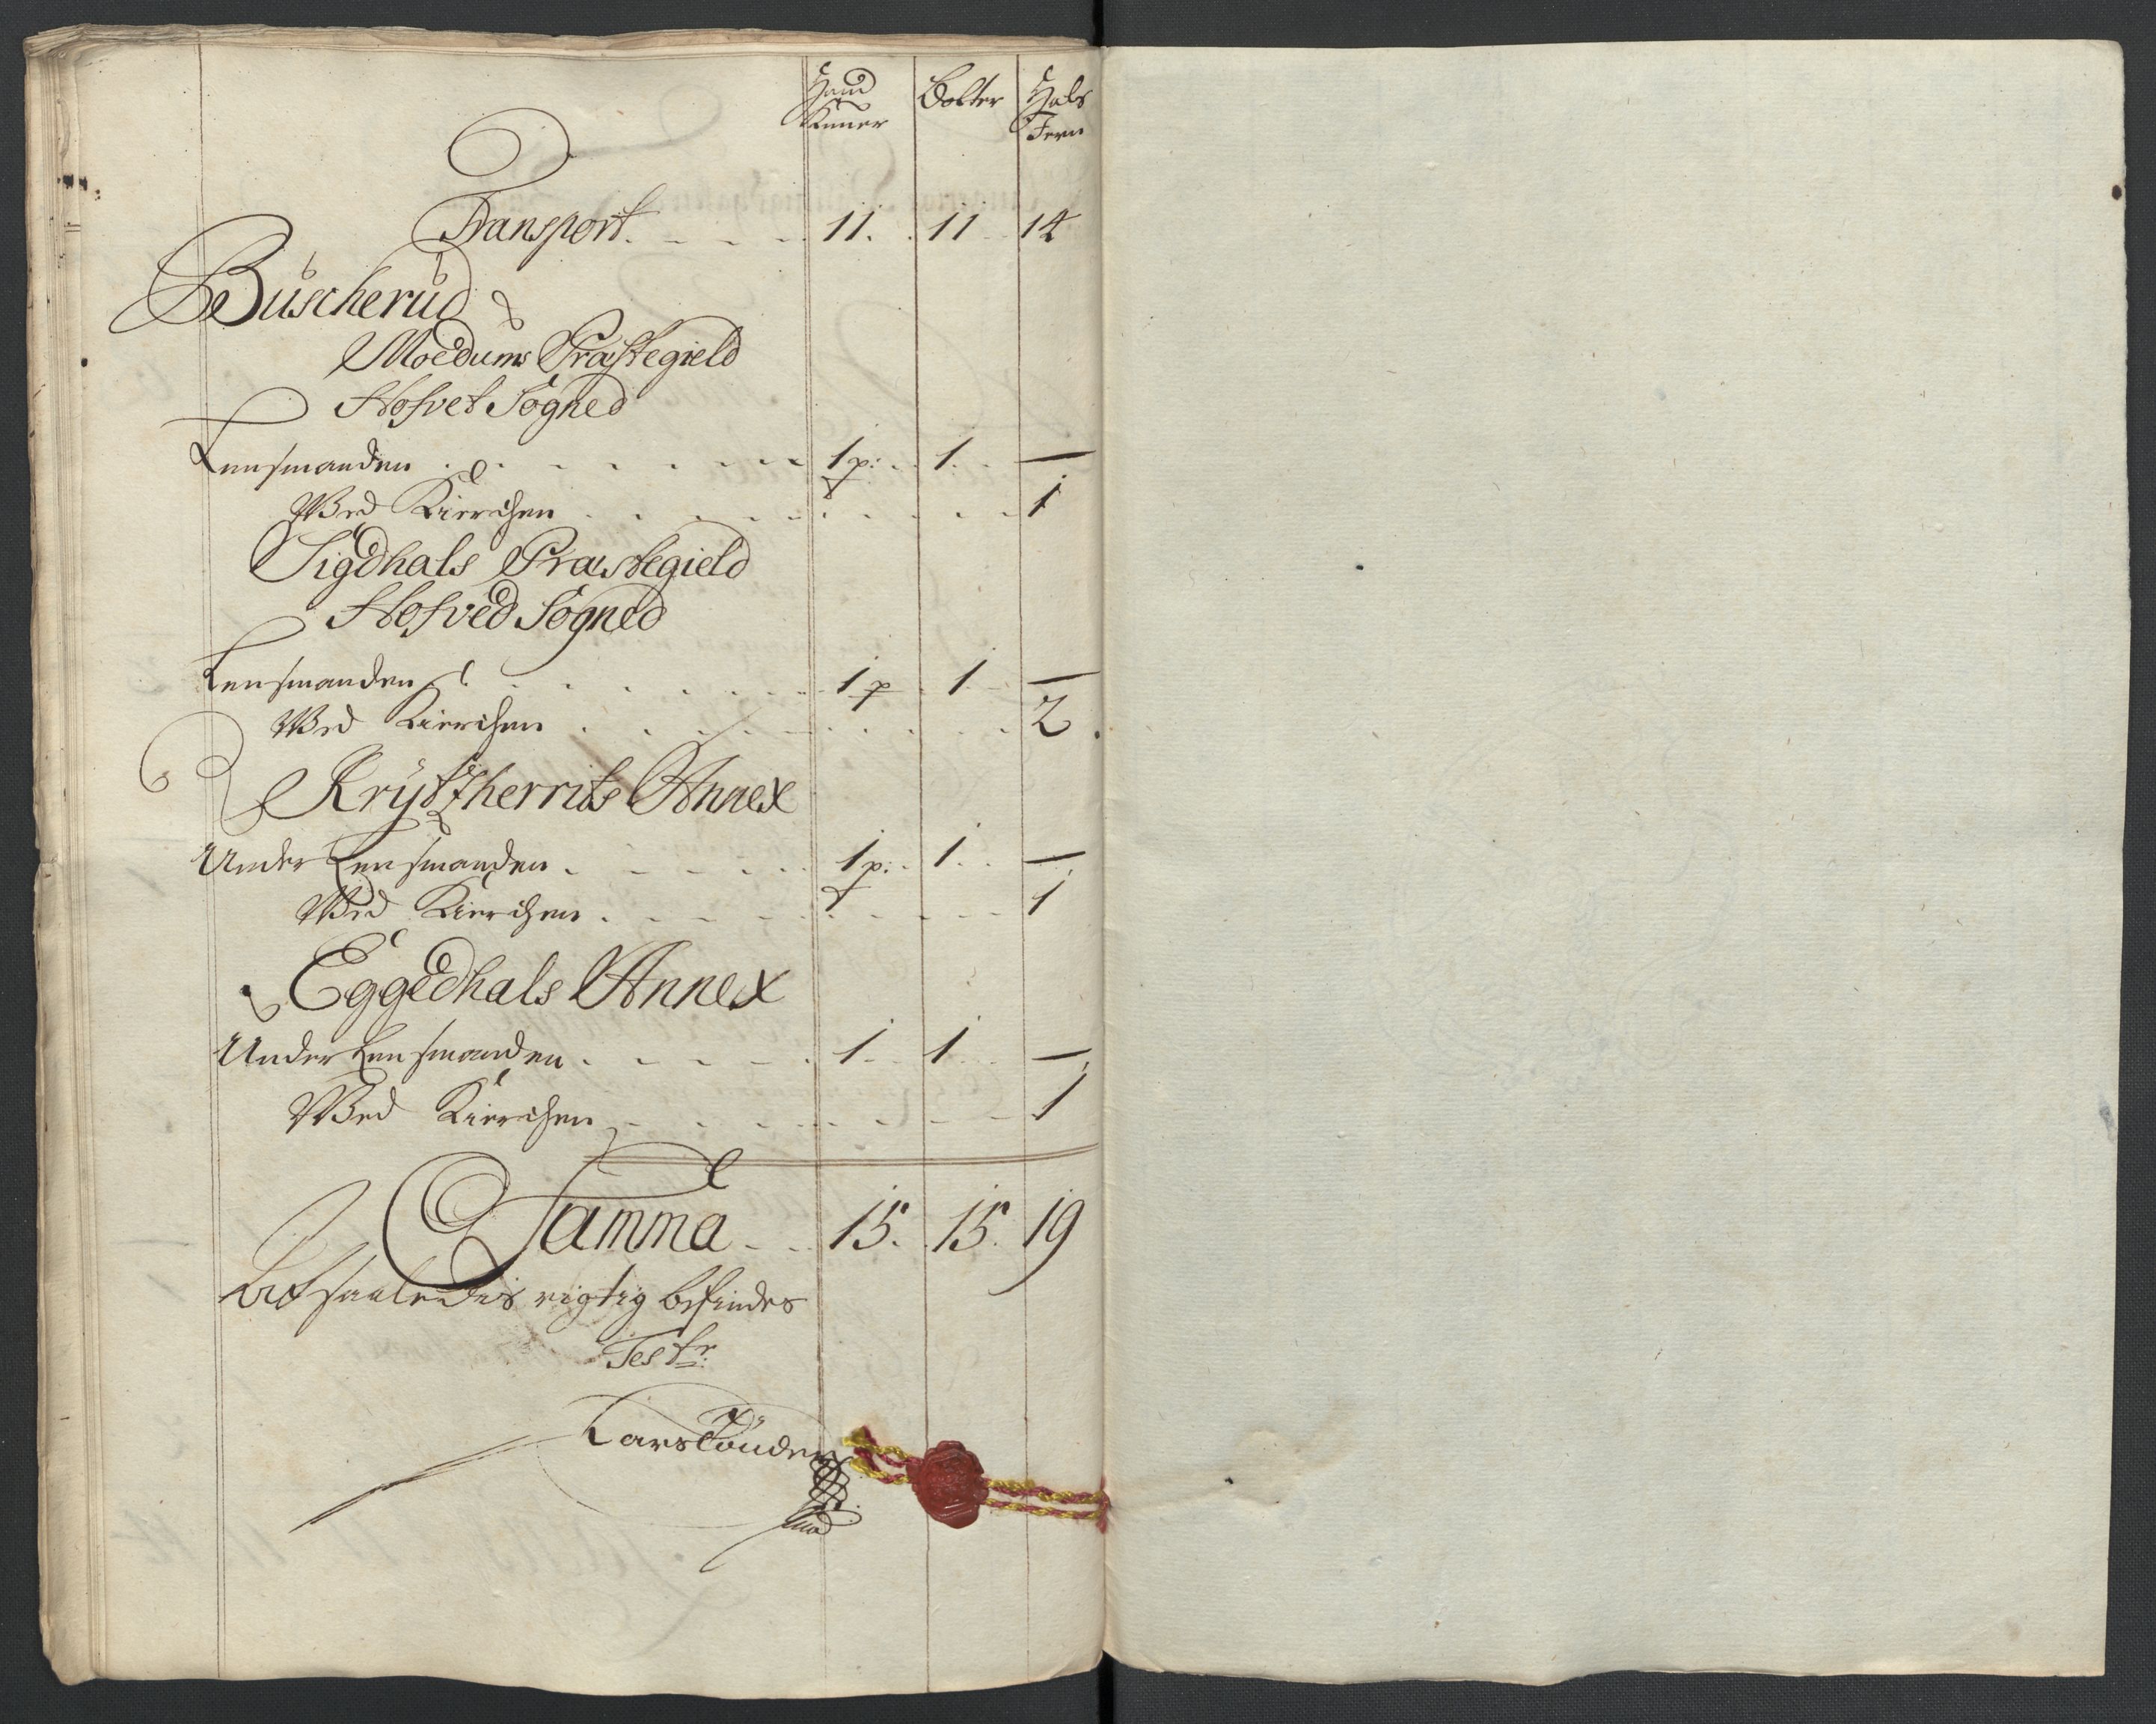 Haand Bolter Hals
Kiner Jern
Transport 11. 11 14
Buscherud
Moedums Præstegield
Hofvet Sogned
Lensmanden 1 p: 1. —
Wed Kierchen 1
Sigdhals Præstegield
Hofved Sogned
Lensmanden 1 p 1 —
Wed Kierchen 2
Kryttzherrits Annex
Under Lensmanden 1 p: 1 —
Wed Kierchen 1
Eggedhals Annex
Under Lensmanden 1 1 —
Wed Kierchen 1
Summa 15. 15. 19
saaledis rigtig befindes
Testr:
Lars Tønder